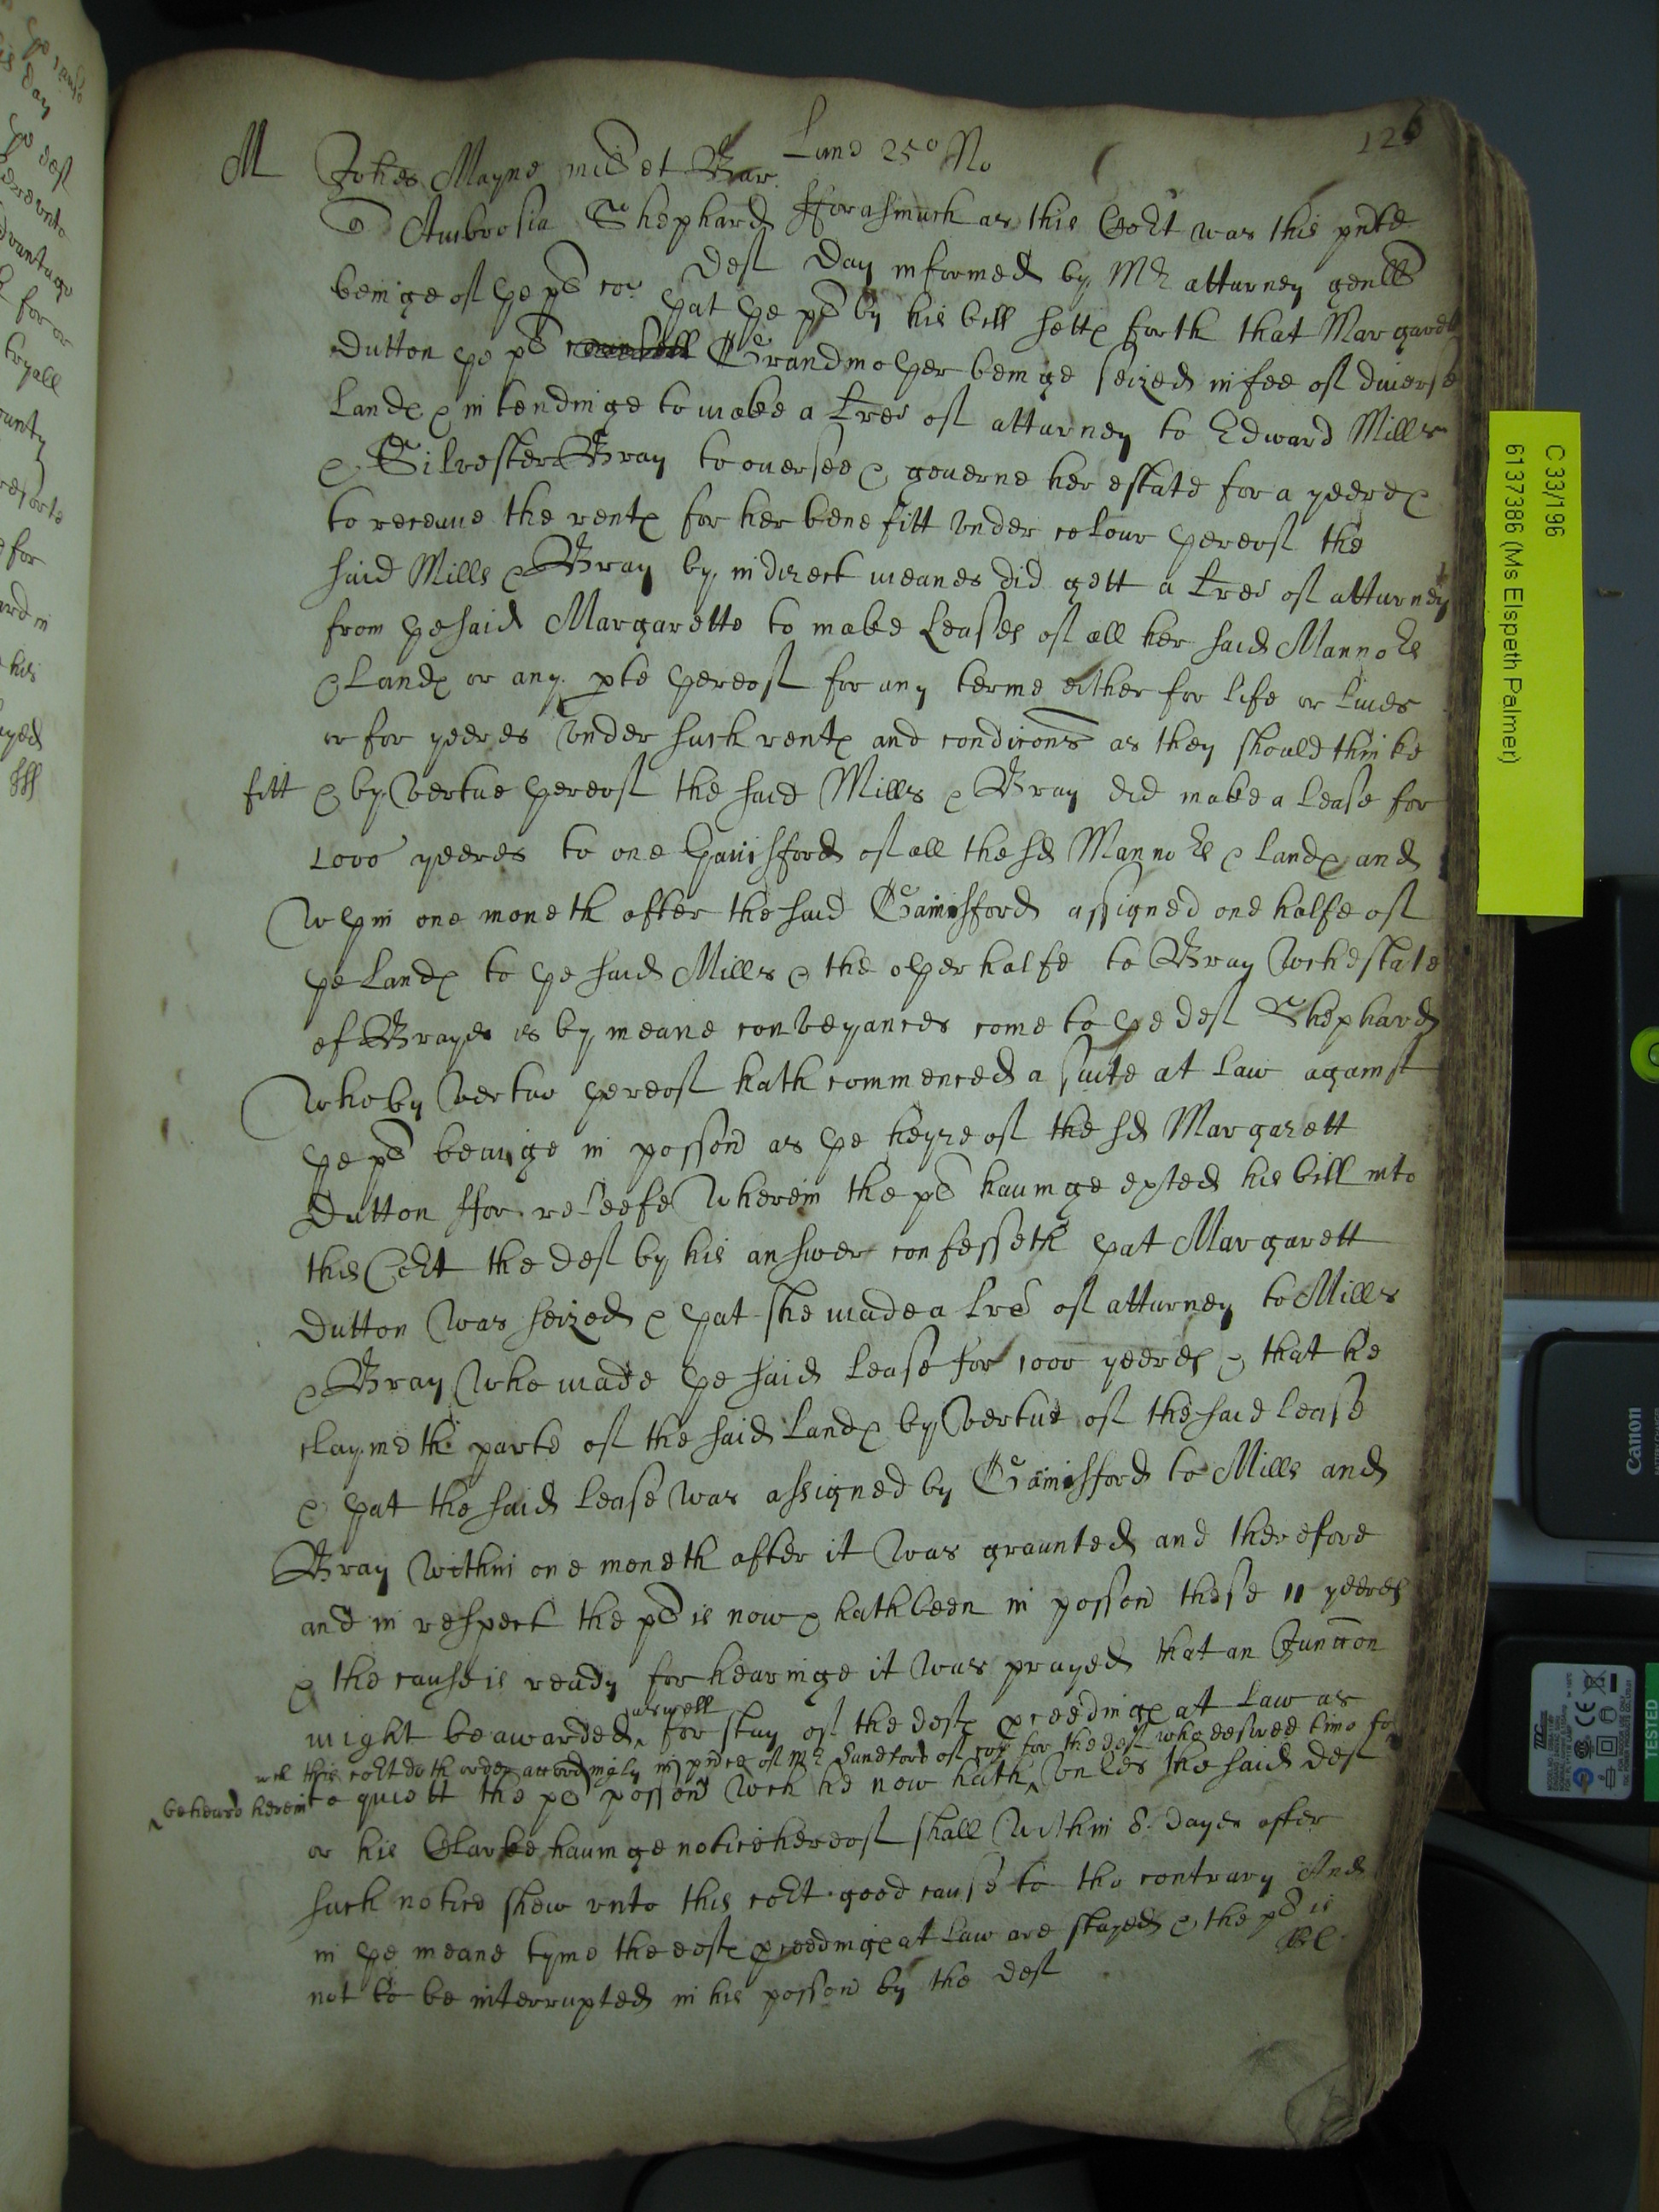 126
Lune 25o No
M Johes Mayne miles et Bar
Ambrosia Shephard deft fforasmuch as this Cort was this pnte
day informed by Mr atturney genll
beinge of the pl co: that the pl by his bill setts forth that Margarett
Dutton the pl Grandmother beinge seized in fee of diverse
lands & intendinge to make a lre of atturney to Edward Mills
& Silvester Bray to oversee & governe her estate for a yeere &
to receave the rents for her benefitt under colour thereof the
said Mills & Bray by indirect meanes did gett a lre of atturney
from the said Margarette to make leases of all her said Mannors
& lands or any pte thereof for any terme either for life or lives
or for yeeres under such rents and condicons as they should thinke
fitt & by vertue thereof the said Mills & Bray did make a lease for
1000 yeeres to one Gainsford of all the sd Mannors & lands and
wthin one moneth after the said Gainsford assigned one halfe of
the lands to the said Mills & the other halfe to Bray wch estate
of Brayes is by meane conveyances come to the deft Shephard
who by vertue thereof hath commenced a suite at law against
the pl beinge in posson as the heyre of the sd Margarett
Dutton ffor releefe wherein the pl havinge exted his bill into
this Cort the deft by his answer confesseth that Margarett
Dutton was seized & that she made a lre of atturney to Mills
& Bray who made the said lease for 1000 yeeres & that he
claymeth parte of the said lands by vertue of the said lease
& that the said lease was assigned by Gainsford to Mills and
Bray within one moneth after it was graunted and therefore
and in respect the pl is now & hath been in posson these 11 yeeres
& the cause is ready for hearinge it was prayed that an Junccon
might be awarded aswell for stay of the defts pceedings at law as
wch this cort doth order accordingly in pnce of Mr of co: for the deft who desired time to
be heard herein
to quiett the pl posson wch he now hath unles the said deft
or his Clarke havinge notice hereof shall within 8 dayes after
such notice shew unto this cort good cause to the contrary And
in the meane tyme the defts pceedings at law are stayed & the pl is
not to be interrupted in his posson by the deft
C 33/196
6137386 (Ms Elspeth Palmer)
Canon
TESTED